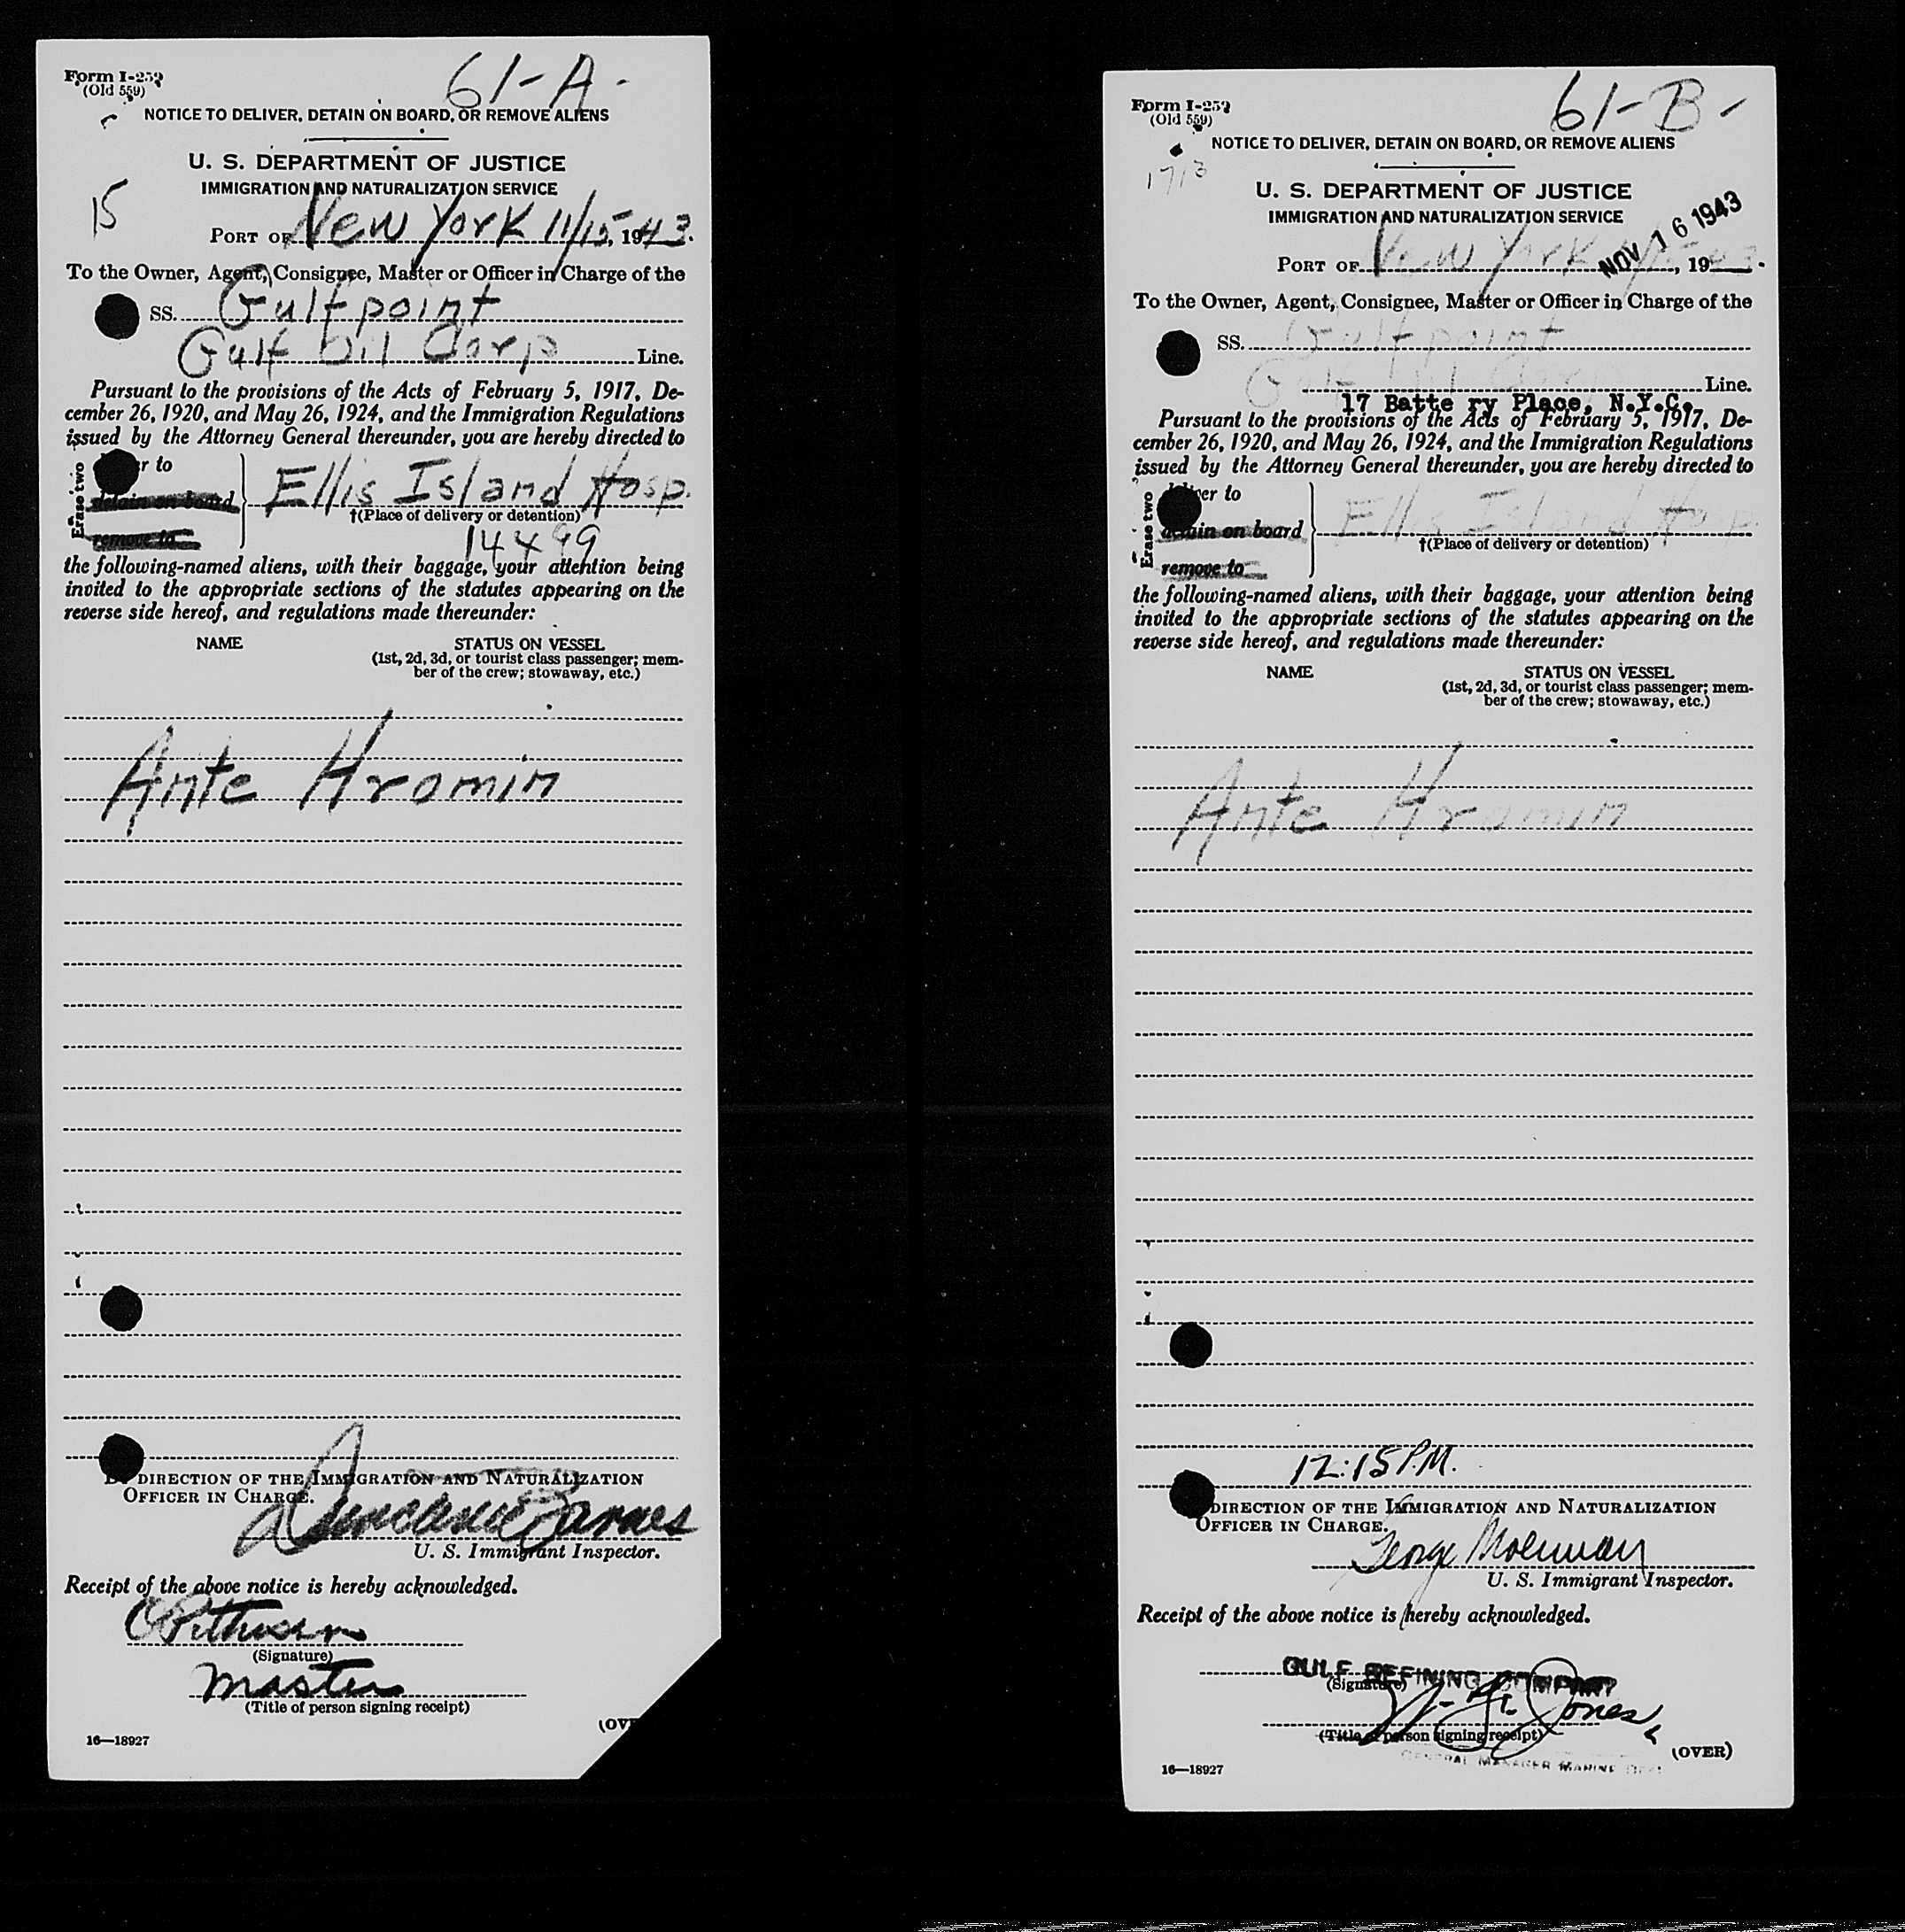 Form I-259
(Old 559)
61-A-
NOTICE TO DELIVER, DETAIN ON BOARD, OR REMOVE ALIENS
U. S. DEPARTMENT OF JUSTICE
IMMIGRATION AND NATURALIZATION SERVICE
15
PORT OF New York 11/15, 1943.
To the Owner, Agent, Consignee, Master or Officer in Charge of the
SS. Gulfpoint
Gulf Oil Corp Line.
Pursuant to the provisions of the Acts of February 5, 1917, De-
cember 26, 1920, and May 26, 1924, and the Immigration Regulations
issued by the Attorney General thereunder, you are hereby directed to
Erase two
r to
detain on board
remove to
Ellis Island Hosp.
†(Place of delivery or detention)
14499
the following-named aliens, with their baggage, your attention being
invited to the appropriate sections of the statutes appearing on the
reverse side hereof, and regulations made thereunder:
NAME STATUS ON VESSEL
(1st, 2d, 3d, or tourist class passenger; mem-
ber of the crew; stowaway, etc.)
Ante Hromin
DIRECTION OF THE IMMIGRATION AND NATURALIZATION
OFFICER IN CHARGE.
Barnes
U. S. Immigrant Inspector.
Receipt of the above notice is hereby acknowledged.
(Signature)
Master
(Title of person signing receipt)
(OV
16—18927
Form I-259
(Old 559)
61-B-
NOTICE TO DELIVER, DETAIN ON BOARD, OR REMOVE ALIENS
1713
U. S. DEPARTMENT OF JUSTICE
IMMIGRATION AND NATURALIZATION SERVICE
NOV 16 1943
PORT OF New York 11/15, 1943.
To the Owner, Agent, Consignee, Master or Officer in Charge of the
SS. Gulfpoint
Gulf Oil Corp Line.
17 Batte ry Place, N.Y.C.
Pursuant to the provisions of the Acts of February 5, 1917, De-
cember 26, 1920, and May 26, 1924, and the Immigration Regulations
issued by the Attorney General thereunder, you are hereby directed to
Erase two
er to
detain on board
remove to
Ellis Island Hosp.
†(Place of delivery or detention)
the following-named aliens, with their baggage, your attention being
invited to the appropriate sections of the statutes appearing on the
reverse side hereof, and regulations made thereunder:
NAME STATUS ON VESSEL
(1st, 2d, 3d, or tourist class passenger; mem-
ber of the crew; stowaway, etc.)
Ante Hromin
12:15 P.M.
DIRECTION OF THE IMMIGRATION AND NATURALIZATION
OFFICER IN CHARGE.
George
U. S. Immigrant Inspector.
Receipt of the above notice is hereby acknowledged.
GULF REFINING COMPANY
(Signature)
Jones
(Title of person signing receipt)
GENERAL MANAGER MARINE DEPT.
(OVER)
16—18927